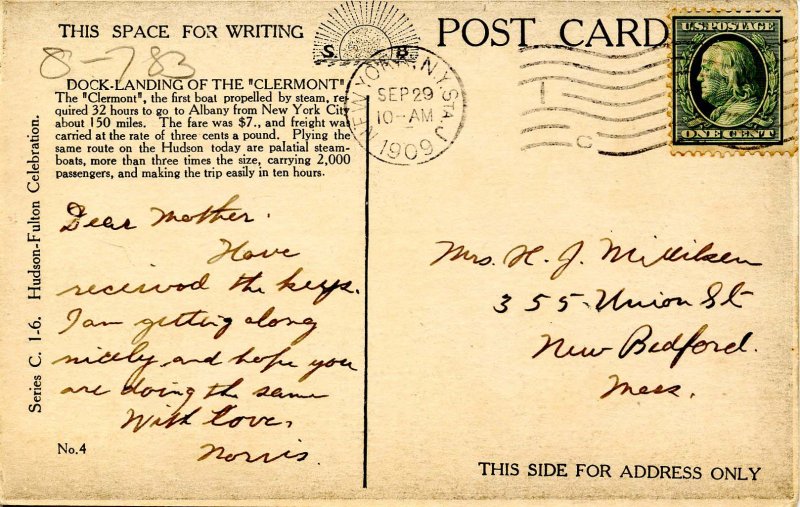 THIS SPACE FOR WRITING
S. B.
POST CARD
8-783
U.S. POSTAGE
ONE CENT
NEW YORK, N.Y. STA J
SEP 29
10-AM
1909
1
C
DOCK-LANDING OF THE "CLERMONT"
The "Clermont", the first boat propelled by steam, re-
quired 32 hours to go to Albany from New York City
about 150 miles. The fare was $7., and freight was
carried at the rate of three cents a pound. Plying the
same route on the Hudson today are palatial steam-
boats, more than three times the size, carrying 2,000
passengers, and making the trip easily in ten hours.
Series C. 1-6. Hudson-Fulton Celebration.
Dear Mother.
Have
received the keys.
I am getting along
nicely and hope you
are doing the same
With love,
Norris.
No. 4
Mrs. H. J. Milliken
355 Union St
New Bedford.
Mass.
THIS SIDE FOR ADDRESS ONLY